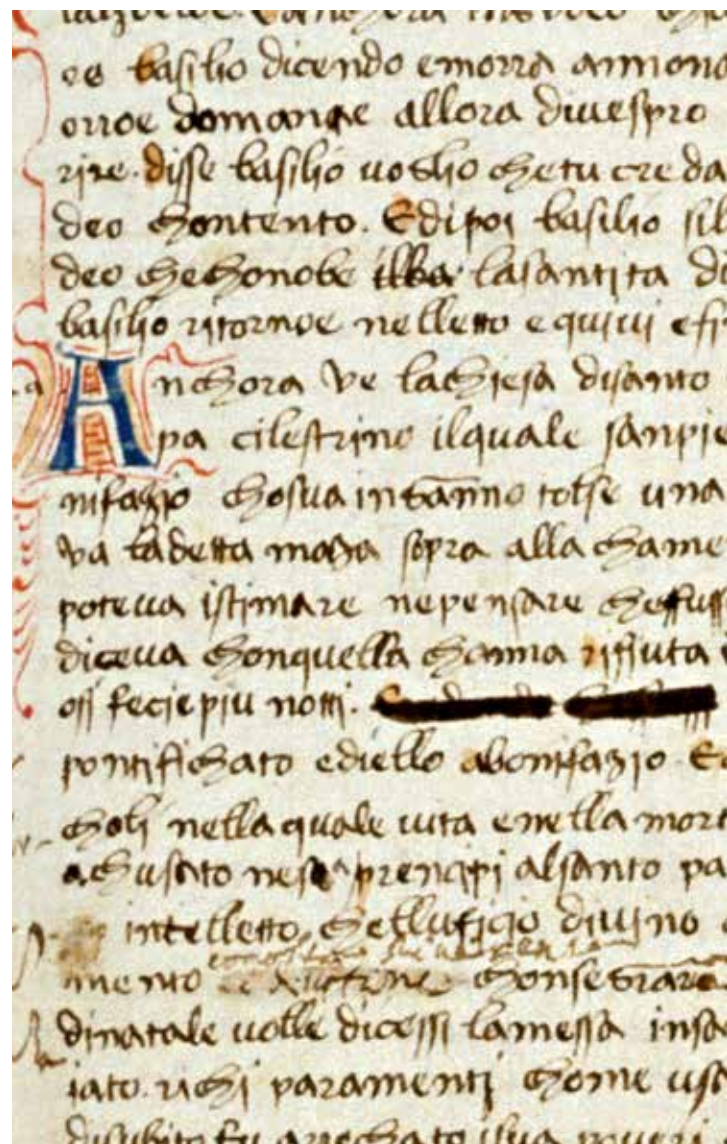 os basilio dicendo e morra annona
orroe domanne allora di uespro
rire. disse basilio uoglio che tu creda
deo chontento. Edipoi basilio sil
deo chechonobe lasantita di
basilio ritornoe nelletto equiui efi
Anchora ve lachiesa disanto
pa cilestrino ilquale sanpie
nifazio chosua inganno tolse una
va sopra alla chame
poteua istimare nepensare chefuss
diceua chonquella channa rifiuta
ossi feciepiu notti.
pontifichato ediello abonifazio. Ed
choli nella quale uita enella mort
achusato prencipi alsanto pa
intelletto chelluficio diuino
mento chonsegrare
dinatale uolle dicessi lamessa insa
iato. richi paramenti chome usa
disubito fu arrechato